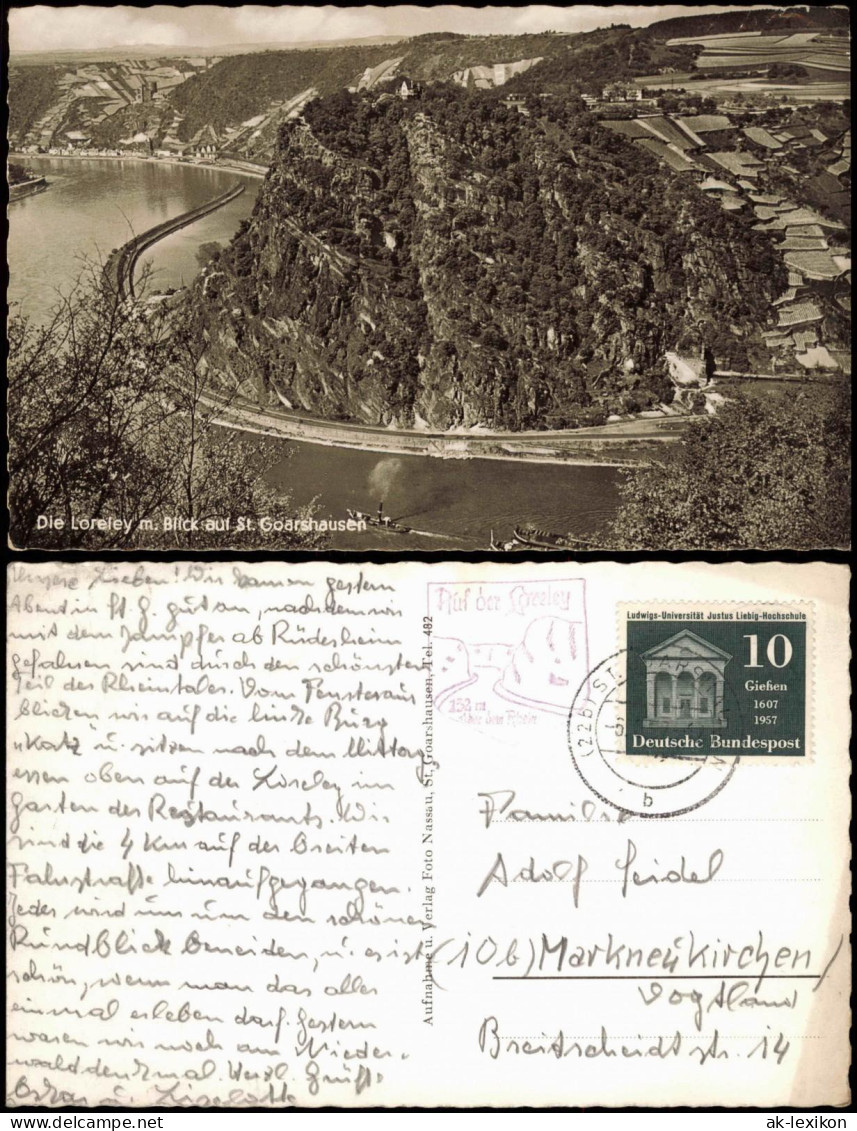 Die Loreley m. Blick auf St. Goarshausen
Unsere Lieben! Wir kamen gestern
Abend in St. G. gut an, nachdem wir
mit dem Dampfer ab Rüdesheim
gefahren sind durch den schönsten
Teil des Rheintales. Vom Fenster aus
blicken wir auf die Burg
„Katz" u. sitzen nach dem Mittag-
essen oben auf der Loreley im
Garten des Restaurants. Wir
sind die 4 Km auf der breiten
Fahrstraße hinaufgegangen.
Jeder wird uns um den schönen
Rundblick beneiden, u. es ist
schön, wenn man das alles
einmal erleben darf. Gestern
waren wir noch am Nieder-
walddenkmal. Herzl. Grüße
u. Liselotte
Aufnahme u. Verlag Foto Nassau, St. Goarshausen, Tel. 482
Auf der Loreley
152 m
über dem Rhein
(22b) ST.
b
Ludwigs-Universität Justus Liebig-Hochschule
10
Gießen
1607
1957
Deutsche Bundespost
Familie
Adolf Seidel
(10b) Markneukirchen/
Vogtland
Breitscheidtstr. 14
www.ak-ansichtskarten.de
ak-lexikon